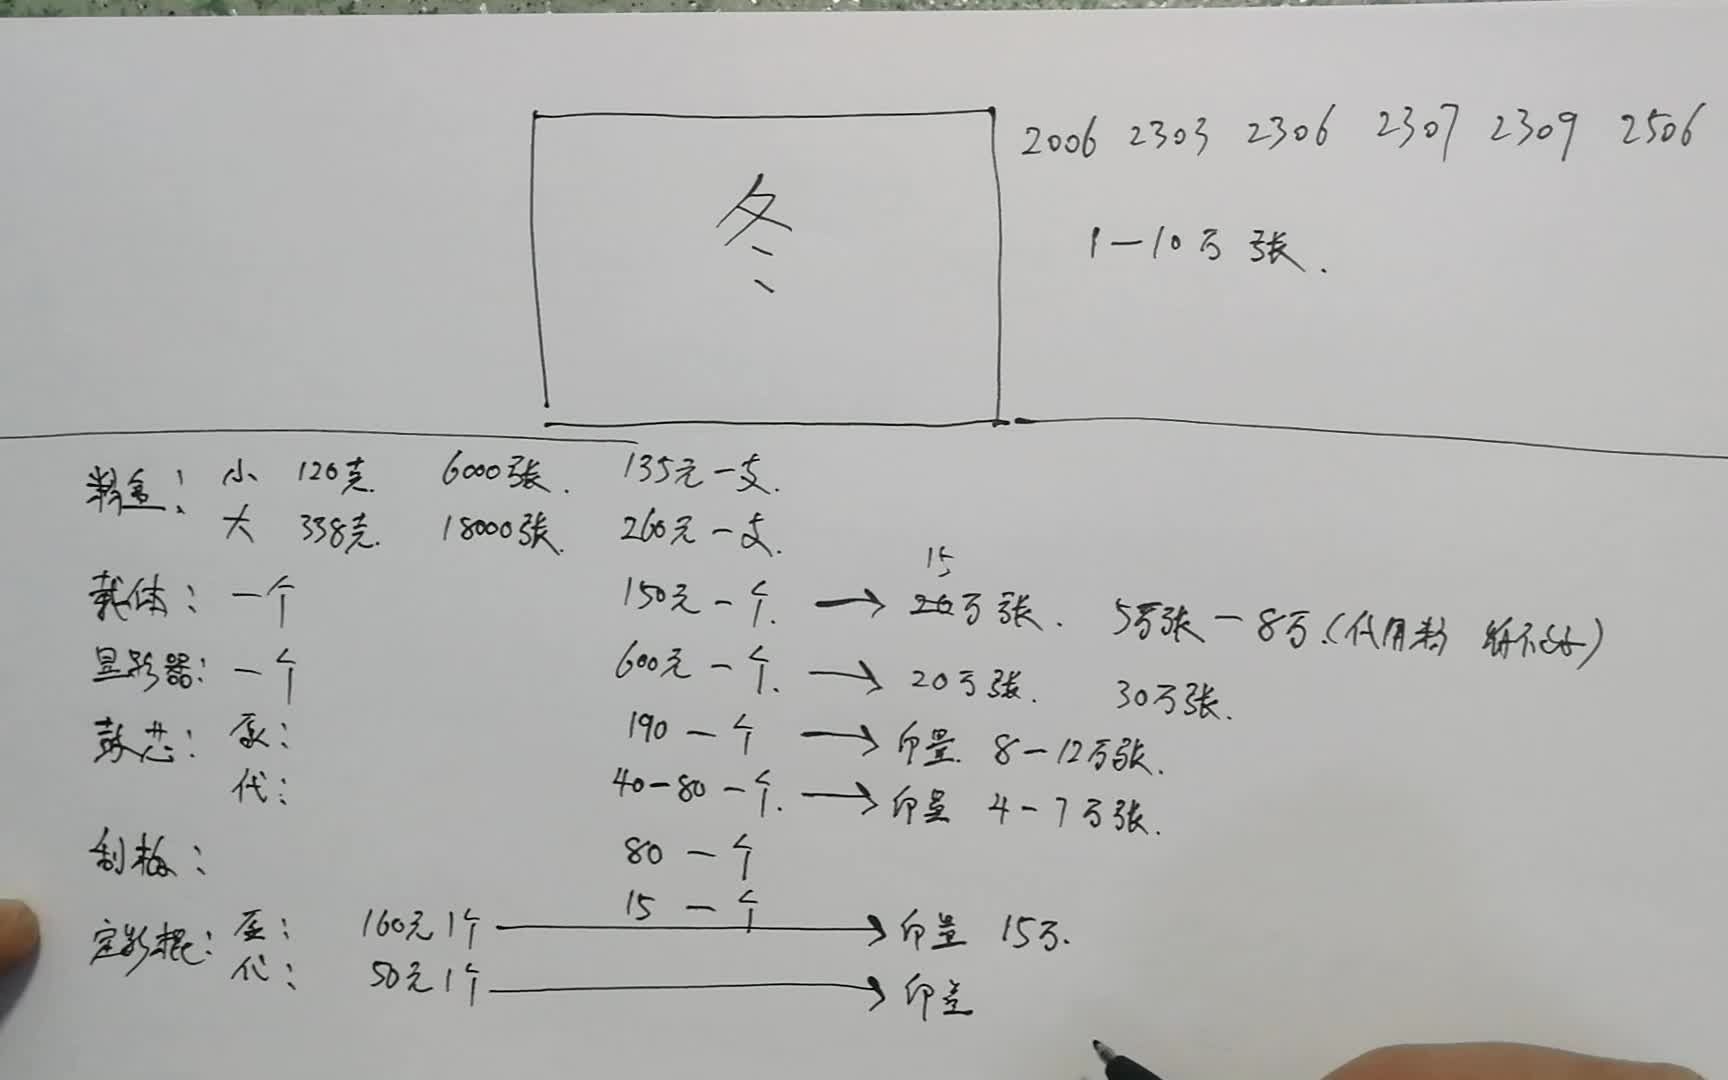 2006 2303 2306 2307 2309 2506
冬
1-10万张.
粉盒: 小 120克. 6000张. 135元一支.
大 338克. 18000张. 260元一支.
载体: 一个 150元一个. → 15万张. 5万张-8万.(代用粉
显影器: 一个 600元一个. → 20万张. 30万张.
鼓芯: 原: 190一个 → 印量. 8-12万张.
代: 40-80一个. → 印量 4-7万张.
刮板: 80一个
15一个
定影棍: 原: 160元1个 → 印量 15万.
代: 50元1个 → 印量